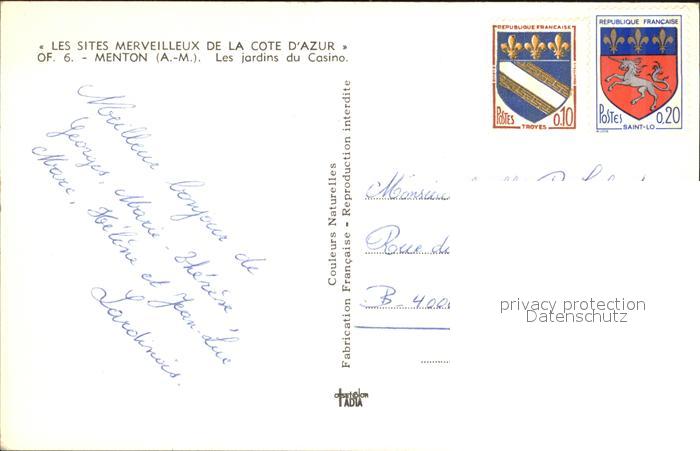 « LES SITES MERVEILLEUX DE LA COTE D'AZUR »
OF. 6. - MENTON (A.-M.). Les jardins du Casino.
Meilleur bonjour de
Georges, Marie-Thérèse,
Marc, Hélène et Jean-Luc
Lardinois.
Couleurs Naturelles
Fabrication Française - Reproduction interdite
ADIA
REPUBLIQUE FRANÇAISE
POSTES 0,10
TROYES
REPUBLIQUE FRANÇAISE
POSTES 0,20
SAINT-LO
Monsieur
Rue du
B-4000
privacy protection
Datenschutz